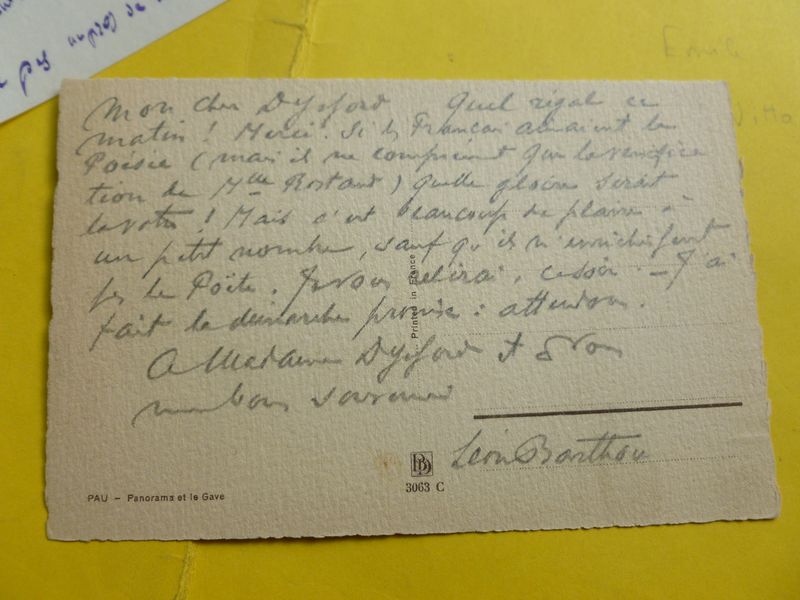 Mon cher Dyssord Quel régal ce
matin ! Merci. Si les Français aimaient la
Poésie (mais il ne comprennent que la versifica
tion de Mlle Rostand) quelle gloire serait
la votre ! Mais c'est beaucoup de plaire à
un petit nombre, sauf qu'ils n'enrichissent
pas le Poëte. Je vous relirai, ce soir. – J'ai
fait la démarche promise : attendons.
A Madame Dyssord et à vous
mes bons souvenirs
Léon Barthou
Printed in France
PAU – Panorama et le Gave
3063 C